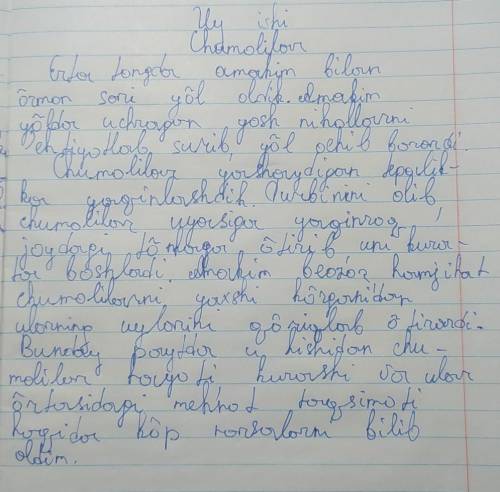 Uy ishi
Chumolilar
Erta tongda amakim bilan
o'rmon sari yo'l oldik. Amakim
yo'lda uchragan yosh nihollarni
ehtiyotlab surib, yo'l ochib borardi.
Chumolilar yashaydigan tepalik-
ka yaqinlashdik. Durbinini olib
chumolilar uyasiga yaqinroq
joydagi to'nkaga o'tirib uni kuza-
ta boshladi. Amakim beozor hamjihat
chumolilarni yaxshi ko'rganidan
ularning uylarini qo'riqlab o'tirardi.
Bunday paytda u kishidan chu-
molilar hayoti kurashi va ular
o'rtasidagi mehnat taqsimoti
haqida ko'p narsalarni bilib
oldim.